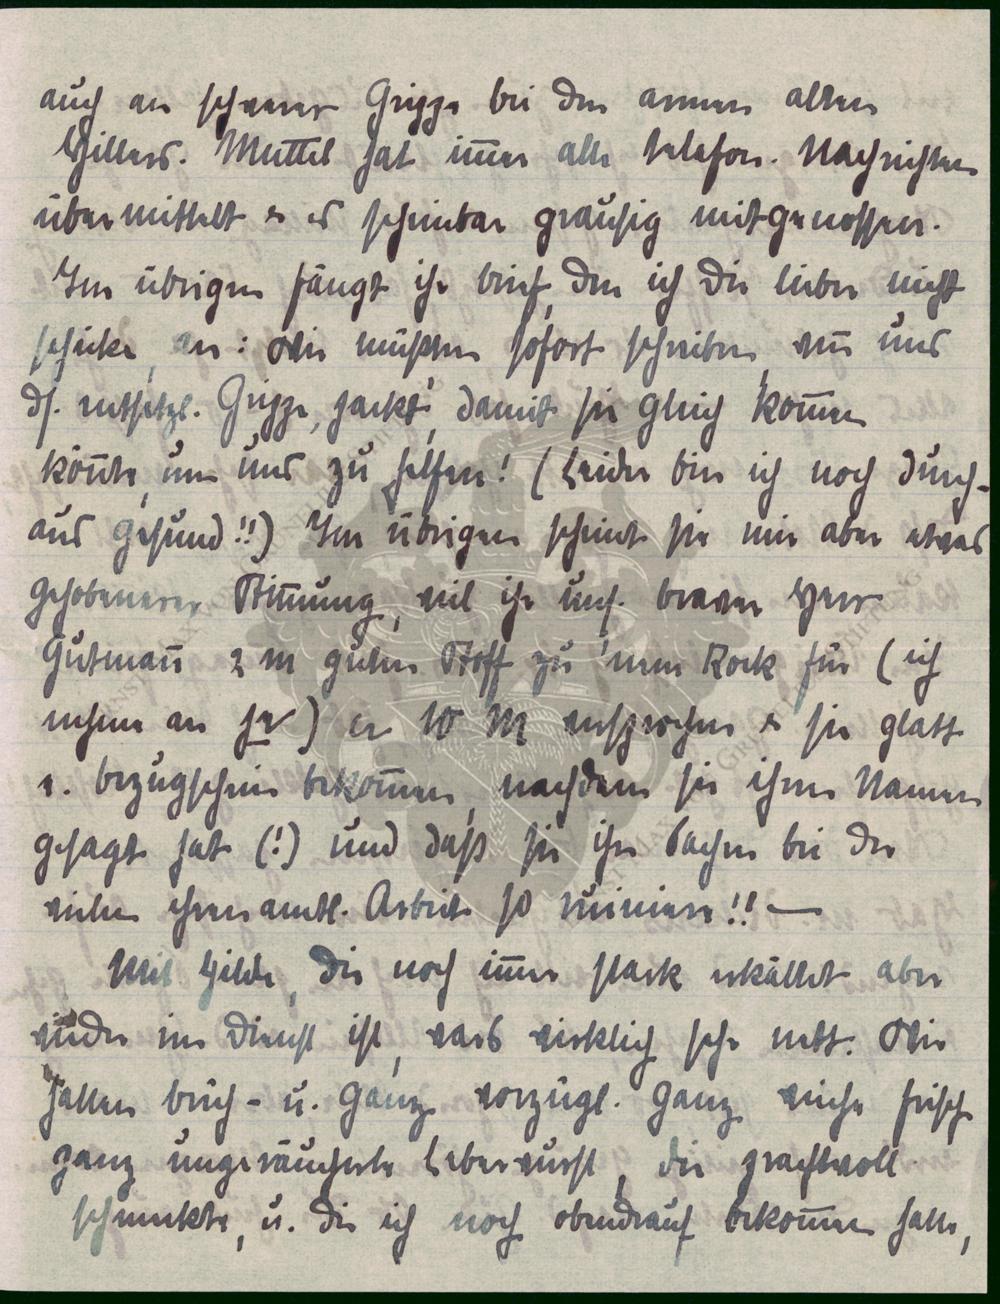 auch an schwerer Grippe bei den armen alten
Hillers. Muttel hat im̄er alle telefon. Nachrichten
übermittelt & es scheinbar grausig mitgenossen.
Im übrigen fängt ihr brief, den ich Dir lieber nicht
schicke, an: Wir müßten sofort schreiben, wen̄ uns
ds. entsetzl. Grippe „packt“, damit sie gleich kom̄en
kön̄te, um uns zu helfen! (Leider bin ich noch durch-
aus gesund!!) Im übrigen scheint sie mir aber etwas
gehobenerer Stim̄ung, weil ihr uns. braver Herr
Gutman̄ 2 m guten Stoff zu 'nem Rock für (ich
nehme an pr) 10 M versprochen & sie glatt
1. bezugschein bekom̄en, nachdem sie ihren Namen
gesagt hat (!) und daß sie ihre Sachen bei der
vielen ehrenamtl. Arbeit so ruiniere!! —
Mit Hilde, die noch im̄er stark erkältet aber
wieder im Dienst ist, wars wirklich sehr nett. Wir
hatten bruch- u. ganz vorzügl. ganz weiche frische
ganz ungeräucherte Leberwurst, die prachtvoll
schmeckte, u. die ich noch obendrauf bekom̄en hatte,